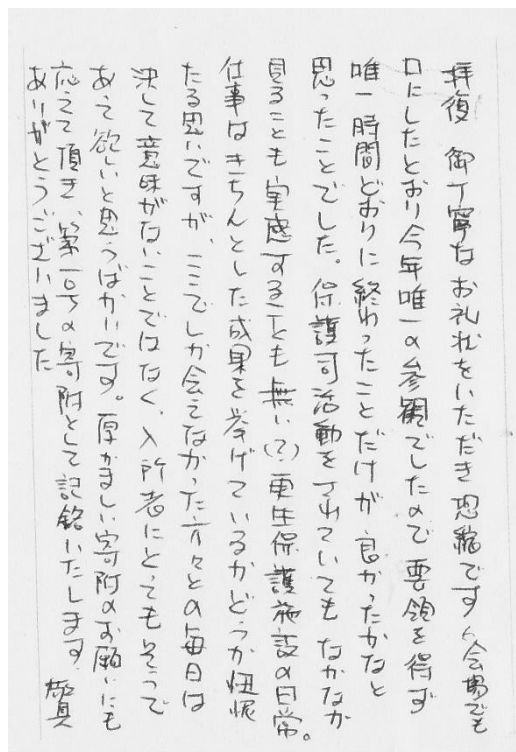 拝復 御丁寧なお礼状をいただき恐縮です。会場でも
口にしたとおり今年唯一の参観でしたので要領を得ず
唯一時間どおりに終わったことだけが良かったかなと
思ったことでした。保護司活動をされていてもなかなか
見ることも実感することも無い(?)更生保護施設の日常。
仕事はきちんとした成果を挙げているかどうか忸怩
たる思いですが、ここでしか会えなかった方々との毎日は
決して意味がないことではなく、入所者にとってもそうで
あって欲しいと思うばかりです。厚かましい寄附のお願いにも
応えて頂き、第一〇号の寄附として記銘いたします。敬具
ありがとうございました